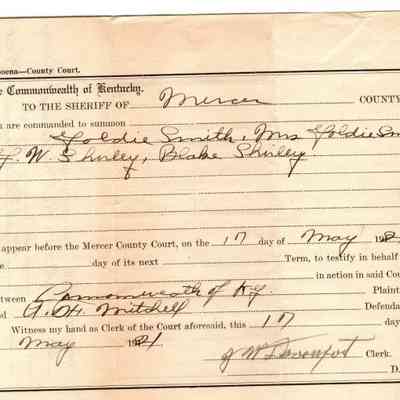 poena—County Court.
e Commonwealth of Kentucky.
TO THE SHERIFF OF Mercer COUNTY
u are commanded to summon
Goldie Smith, Mrs Goldie Sm
W. Shirley, Blake Shirley
appear before the Mercer County Court, on the 17 day of May 192
e day of its next Term, to testify in behalf
in action in said Cou
etween Commonwealth of Ky. Plaint
d Mitchell Defenda
Witness my hand as Clerk of the Court aforesaid, this 17 day
May 1921
J W Davenport Clerk.
D.